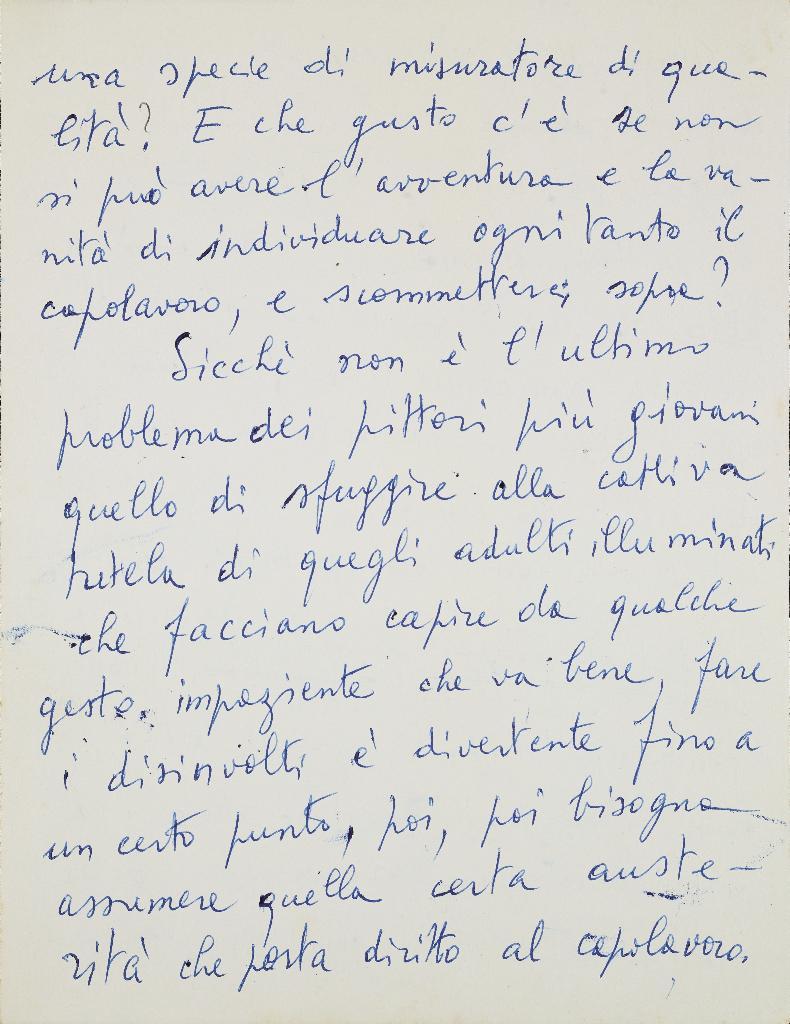 una specie di misuratore di qua-
lità? E che gusto c'è se non
si può avere l'avventura e la va-
nità di individuare ogni tanto il
capolavoro, e scommetterci sopra?
Sicchè non è l'ultimo
problema dei pittori più giovani
quello di sfuggire alla cattiva
tutela di quegli adulti illuminati
che facciano capire da qualche
gesto impaziente che va bene, fare
i disinvolti è divertente fino a
un certo punto, poi, poi bisogna
assumere quella certa auste-
rità che porta diritto al capolavoro.